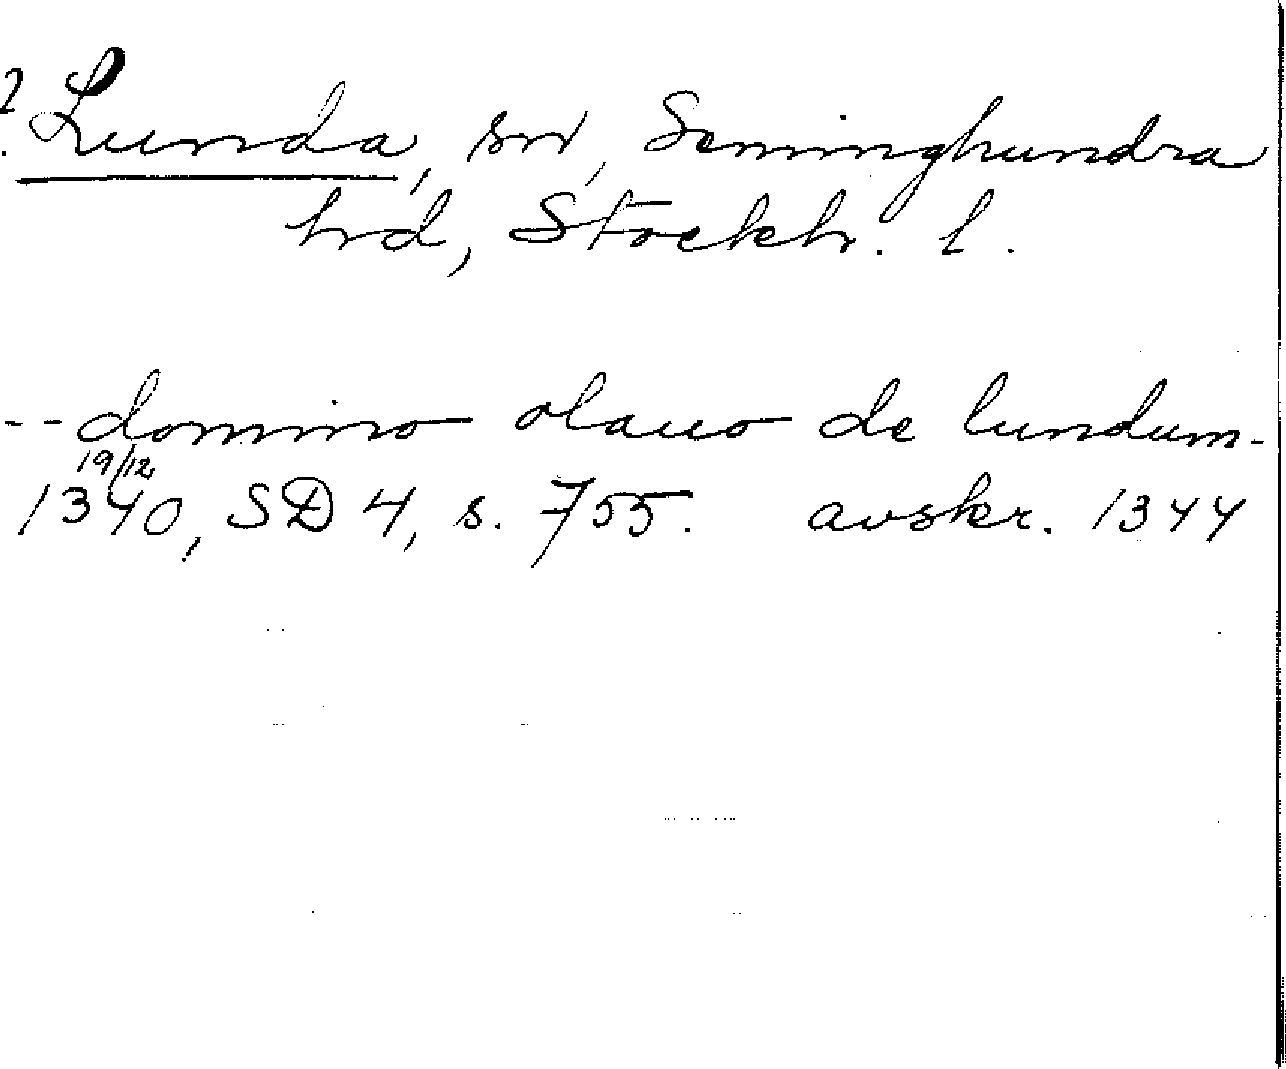 ? Lunda, sn, Seminghundra
hd, Stockh. l.
-- domino olauo de lundum -
19/12
1340, SD 4, s. 755. avskr. 1344